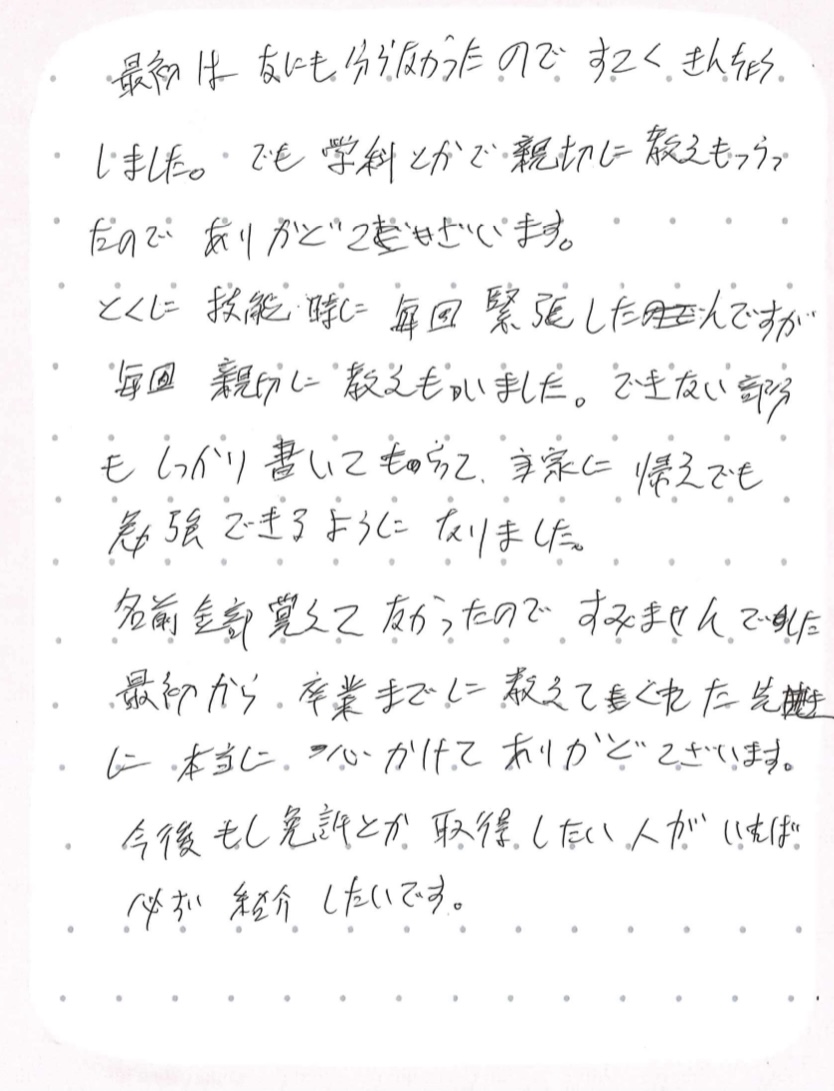 最初は なにも分らなかったので すごく きんちょう
しました。でも 学科とかで 親切に 教えもらっ
たので ありがどございます。
とくに 技能 時に 毎回 緊張したんですが
毎回 親切に 教えもいました。できない部分
も しっかり 書いて もらって、家に 帰えでも
勉強できるように なりました。
名前全部 覚えて なかったので すみませんでした
最初から 卒業までに 教えてくれた 先生
に 本当に 心かけて ありがどございます。
今後 もし免許とか 取得したい人が いれば
必ず 紹介 したいです。